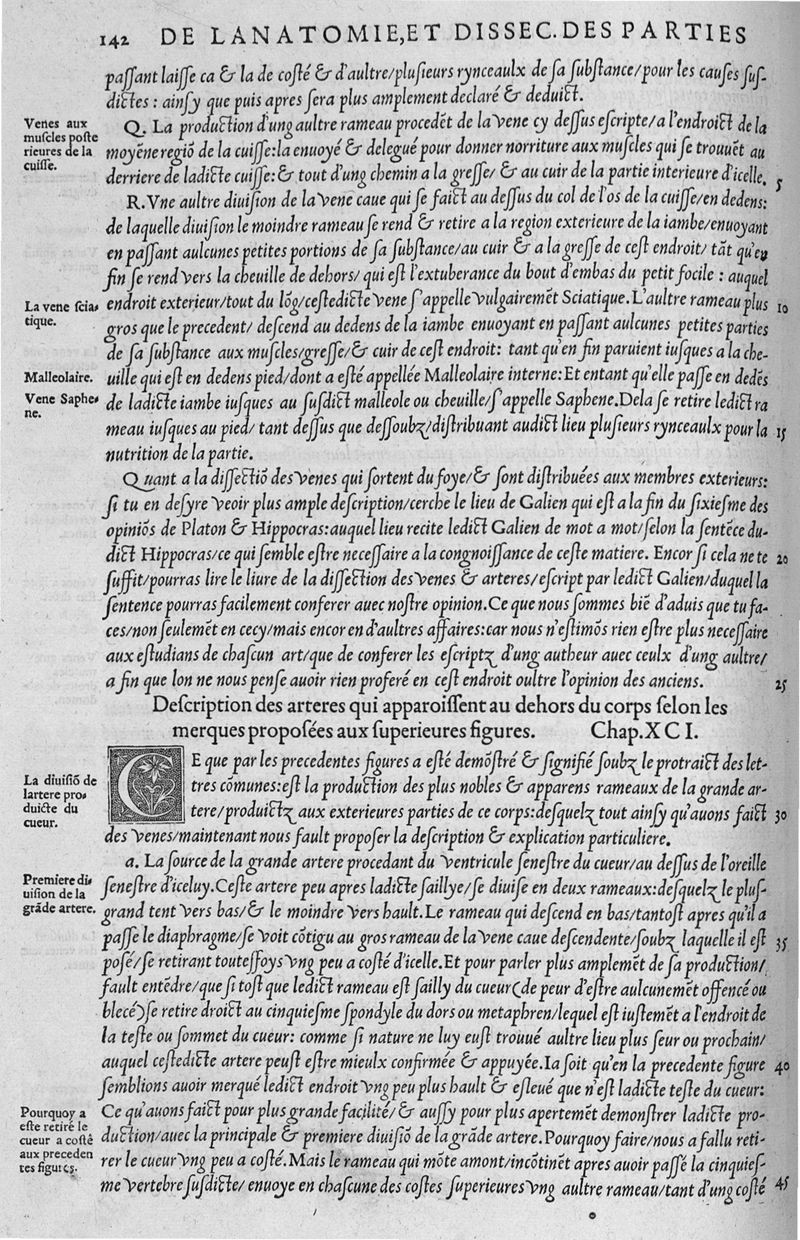 142 DE LANATOMIE, ET DISSEC. DES PARTIES
paſſant laiſſe ca & la de coſté & d'aultre/pluſieurs rynceaulx de ſa ſubſtance/pour les cauſes ſuſ-
dictes : ainſy que puis apres ſera plus amplement declaré & deduict.
Venes aux
muſcles poſte
rieures de la
cuiſſe.
Q. La production d'ung aultre rameau procedēt de la vene cy deſſus eſcripte/a l'endroict de la
moyēne regiō de la cuiſſe:la enuoyé & delegué pour donner norriture aux muſcles qui ſe trouuēt au
derriere de ladicte cuiſſe: & tout d'ung chemin a la greſſe/ & au cuir de la partie interieure d'icelle. 5
R. Vne aultre diuiſion de la vene caue qui ſe faict au deſſus du col de l'os de la cuiſſe/en dedens:
de laquelle diuiſion le moindre rameau ſe rend & retire a la region exterieure de la iambe/enuoyant
en paſſant aulcunes petites portions de ſa ſubſtance/au cuir & a la greſſe de ceſt endroit/ tāt qu'en
fin ſe rend vers la cheuille de dehors/ qui eſt l'extuberance du bout d'embas du petit focile : auquel
La vene ſcia-
tique.
endroit exterieur/tout du lōg/ceſtedicte vene ſ'appelle vulgairemēt Sciatique. L'aultre rameau plus 10
gros que le precedent/ deſcend au dedens de la iambe enuoyant en paſſant aulcunes petites parties
de ſa ſubſtance aux muſcles/greſſe/& cuir de ceſt endroit: tant qu'en fin paruient iuſques a la che-
Malleolaire.
uille qui eſt en dedens pied/dont a eſté appellée Malleolaire interne: Et entant qu'elle paſſe en dedēs
Vene Saphe-
ne.
de ladicte iambe iuſques au ſuſdict malleole ou cheuille/ſ'appelle Saphene. Dela ſe retire ledict ra
meau iuſques au pied/ tant deſſus que deſſoubz/diſtribuant audict lieu pluſieurs rynceaulx pour la 15
nutrition de la partie.
Quant a la diſſectiō des venes qui ſortent du foye/& ſont diſtribuées aux membres exterieurs:
ſi tu en deſyre veoir plus ample deſcription/cerche le lieu de Galien qui eſt a la fin du ſixieſme des
opiniōs de Platon & Hippocras:auquel lieu recite ledict Galien de mot a mot/ſelon la ſentēce du-
dict Hippocras/ce qui ſemble eſtre neceſſaire a la congnoiſſance de ceſte matiere. Encor ſi cela ne te 20
ſuffit/pourras lire le liure de la diſſection des venes & arteres/eſcript par ledict Galien/duquel la
ſentence pourras facilement conferer auec noſtre opinion. Ce que nous ſommes biē d'aduis que tu fa-
ces/non ſeulemēt en cecy/mais encor en d'aultres affaires:car nous n'eſtimōs rien eſtre plus neceſſaire
aux eſtudians de chaſcun art/que de conferer les eſcriptz d'ung autheur auec ceulx d'ung aultre/
a fin que lon ne nous penſe auoir rien proferé en ceſt endroit oultre l'opinion des anciens. 25
Deſcription des arteres qui apparoiſſent au dehors du corps ſelon les
merques propoſées aux ſuperieures figures. Chap. XCI.
La diuiſiō de
lartere pro-
duicte du
cueur.
CE que par les precedentes figures a eſté demōſtré & ſignifié ſoubz le protraict des let-
tres cōmunes:eſt la production des plus nobles & apparens rameaux de la grande ar-
tere/produictz aux exterieures parties de ce corps:deſquelz tout ainſy qu'auons faict 30
des venes/maintenant nous fault propoſer la deſcription & explication particuliere.
a. La ſource de la grande artere procedant du ventricule ſeneſtre du cueur/au deſſus de l'oreille
Premiere di-
uiſion de la
grāde artere.
ſeneſtre d'iceluy. Ceſte artere peu apres ladicte ſaillye/ſe diuiſe en deux rameaux:deſquelz le plus-
grand tent vers bas/& le moindre vers hault. Le rameau qui deſcend en bas/tantoſt apres qu'il a
paſſe le diaphragme/ſe voit cōtigu au gros rameau de la vene caue deſcendente/ſoubz laquelle il eſt 35
poſé/ſe retirant touteſſoys vng peu a coſté d'icelle. Et pour parler plus amplemēt de ſa production/
fault entēdre/que ſi toſt que ledict rameau eſt ſailly du cueur (de peur d'eſtre aulcunemēt offencé ou
blecé) ſe retire droict au cinquieſme ſpondyle du dors ou metaphren/lequel eſt iuſtemēt a l'endroit de
la teſte ou ſommet du cueur: comme ſi nature ne luy euſt trouué aultre lieu plus ſeur ou prochain/
auquel ceſtedicte artere peuſt eſtre mieulx confirmée & appuyée. Ia ſoit qu'en la precedente figure 40
ſemblions auoir merqué ledict endroit vng peu plus hault & eſleué que n'eſt ladicte teſte du cueur:
Pourquoy a
eſte retiré le
cueur a coſté
aux preceden
tes figures.
Ce qu'auons faict pour plus grande facilité/ & auſſy pour plus apertemēt demonſtrer ladicte pro-
duction/auec la principale & premiere diuiſiō de la grāde artere. Pourquoy faire/nous a fallu reti-
rer le cueur vng peu a coſté. Mais le rameau qui mōte amont/incōtinēt apres auoir paſſé la cinquieſ-
me vertebre ſuſdicte/ enuoye en chaſcune des coſtes ſuperieures vng aultre rameau/tant d'ung coſté 45